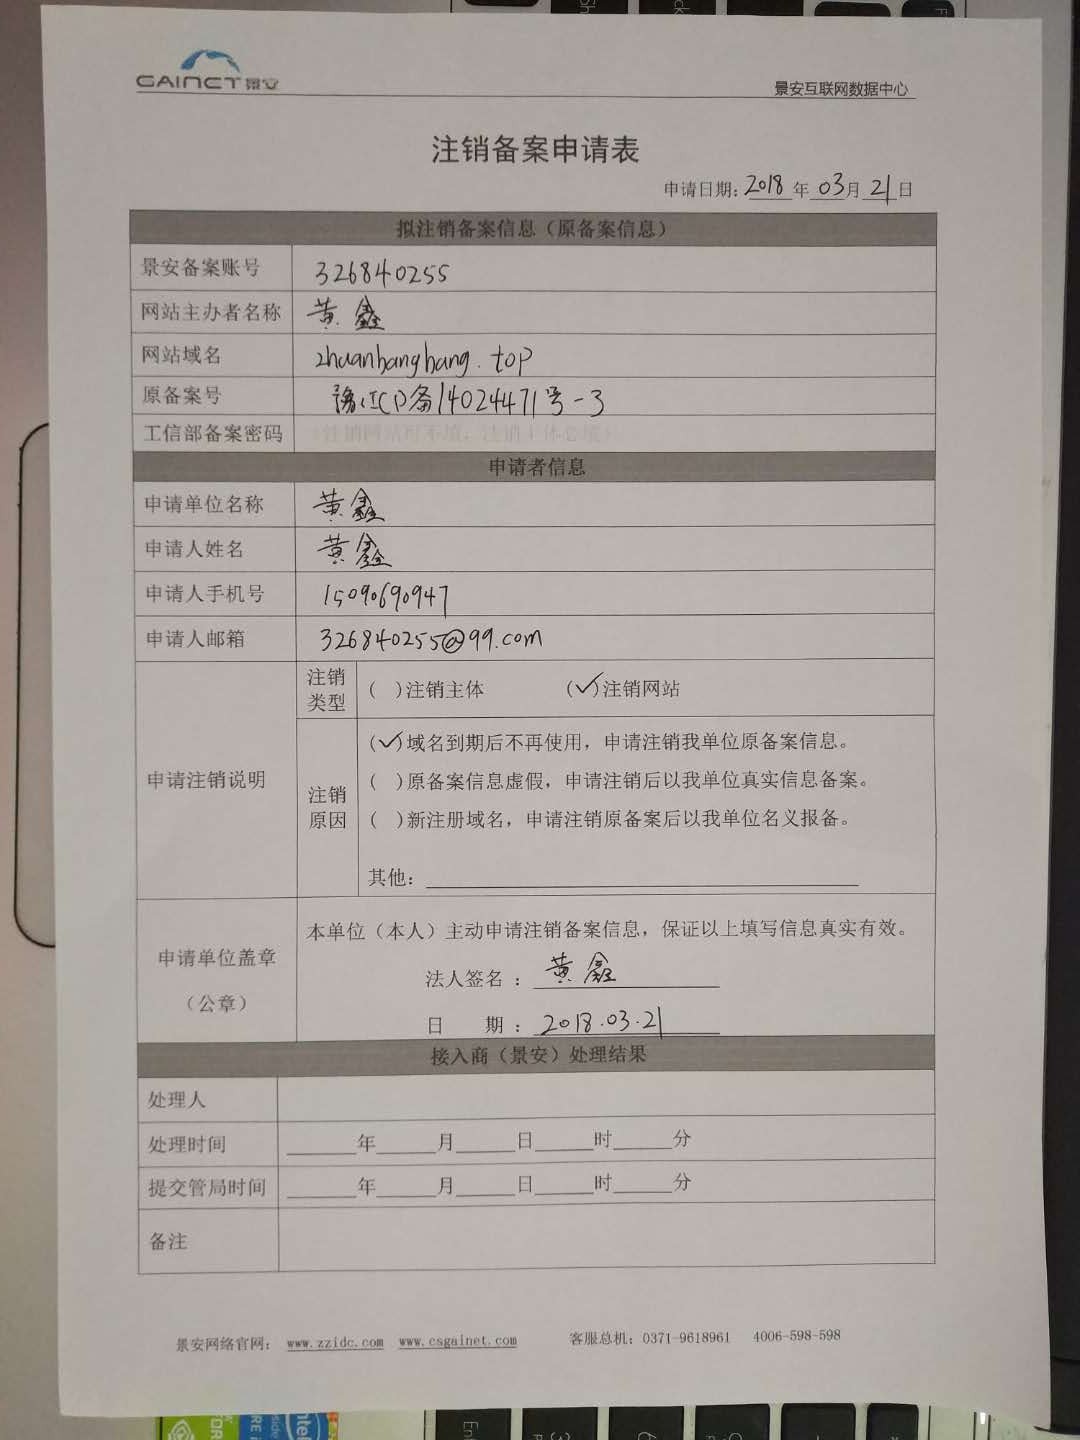 GAINET 景安
景安互联网数据中心
注销备案申请表
申请日期：2018年03月21日
拟注销备案信息（原备案信息）
景安备案账号 326840255
网站主办者名称 黄鑫
网站域名 zhuanbangbang.top
原备案号 豫ICP备14024471号-3
工信部备案密码 （注销网站可不填，注销主体必填）
申请者信息
申请单位名称 黄鑫
申请人姓名 黄鑫
申请人手机号 15090690947
申请人邮箱 326840255@99.com
申请注销说明
注销类型 （ ）注销主体 （✓）注销网站
注销原因
（✓）域名到期后不再使用，申请注销我单位原备案信息。
（ ）原备案信息虚假，申请注销后以我单位真实信息备案。
（ ）新注册域名，申请注销原备案后以我单位名义报备。
其他：
申请单位盖章
（公章）
本单位（本人）主动申请注销备案信息，保证以上填写信息真实有效。
法人签名：黄鑫
日 期：2018.03.21
接入商（景安）处理结果
处理人
处理时间 年 月 日 时 分
提交管局时间 年 月 日 时 分
备注
景安网络官网： www.zzidc.com www.csgainet.com 客服总机：0371-9618961 4006-598-598